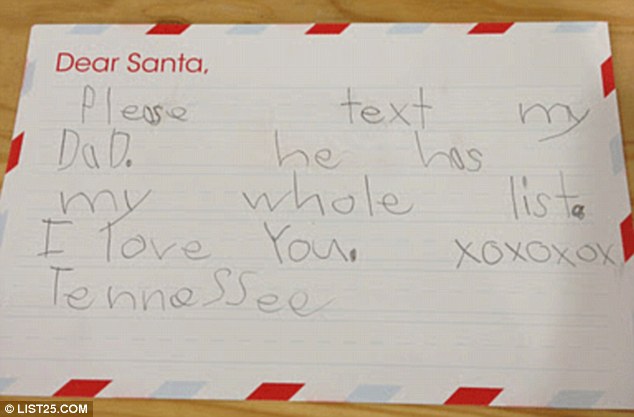 Dear Santa,
Please text my
DaD. he has
my whole list.
I love You. xoxoxox
Tennessee
© LIST25.COM